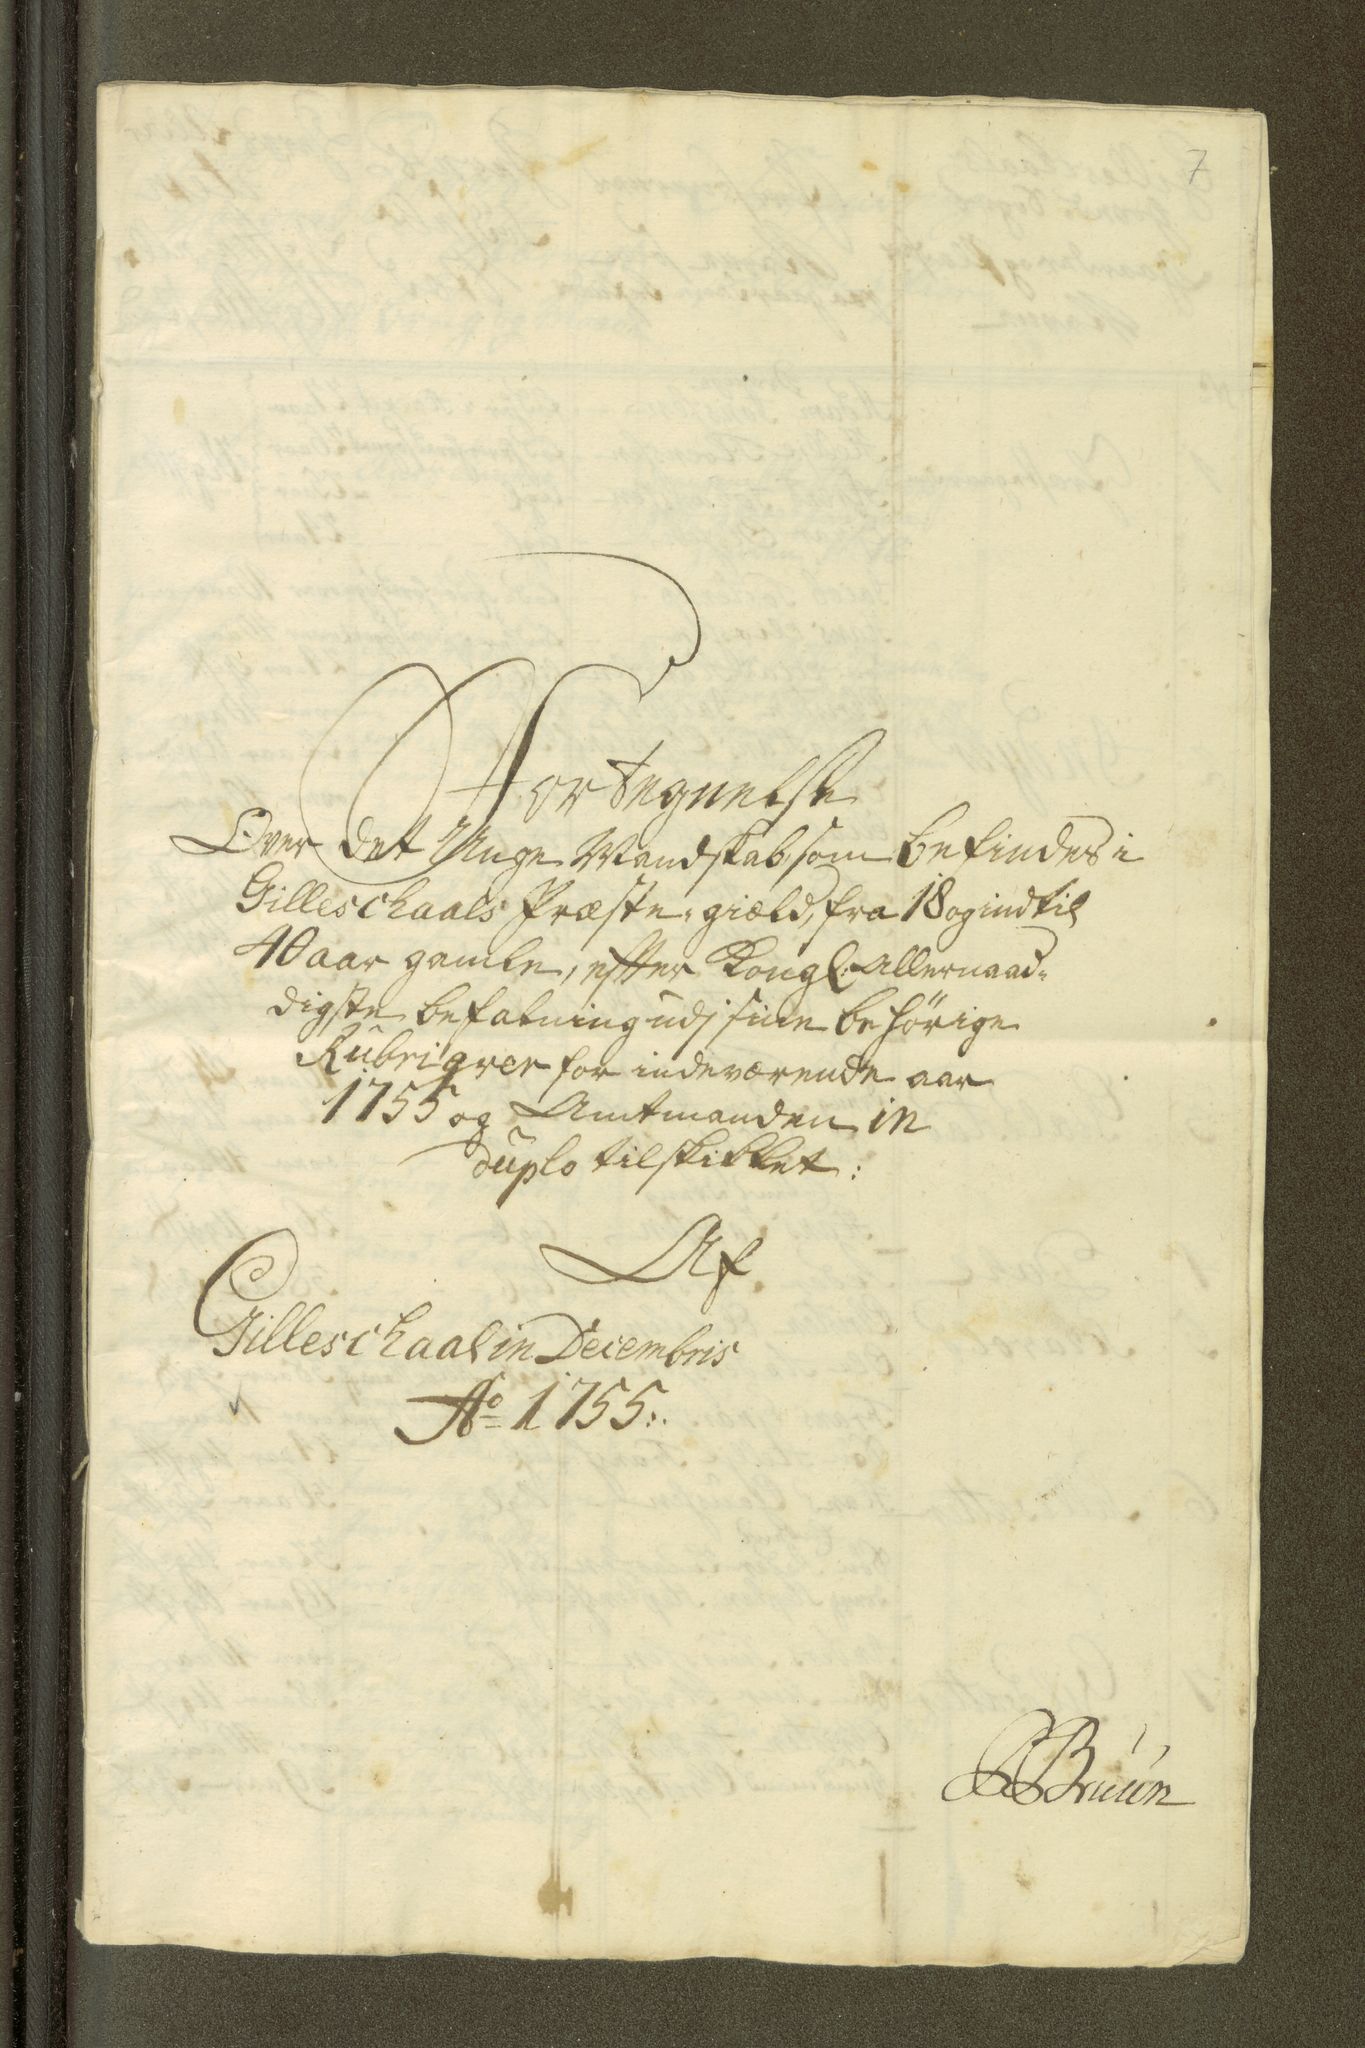 7
Fortegnelse
Over det Unge Mandskab, som befindes i
Gilleschaals Præste-giæld, fra 18 og indtil
40 aar gamle, efter Kongl: Allernaad-
digste befalning udj sine behörige
Rubriqver for indeværende aar
1755 og Amtmanden in
duplo tilskikket:
Af
Gilleschaal in Decembris
Ao 1755:.
Bruun